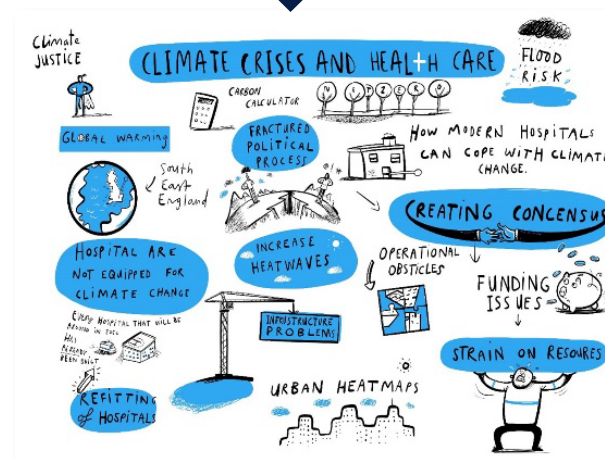 Climate
JUSTICE
CLIMATE CRISES AND HEALTH CARE
FLOOD
RISK
CARBON
CALCULATOR
NETZERO
GLOBAL WARMING
FRACTURED
POLITICAL
PROCESS
HOW MODERN HOSPITALS
CAN COPE WITH CLIMATE
CHANGE.
South
East
England
CREATING CONCENSUS
HOSPITAL ARE
NOT EQUIPPED FOR
CLIMATE CHANGE
INCREASE
HEATWAVES
OPERATIONAL
OBSTICLES
FUNDING
ISSUES
EVERY HOSPITAL THAT WILL BE
AROUND IN
HAS
ALREADY
BEEN BUILT
INFRUSTRUCTURE
PROBLEMS
STRAIN ON RESOURES
REFITTING
of HOSPITALS
URBAN HEATMAPS